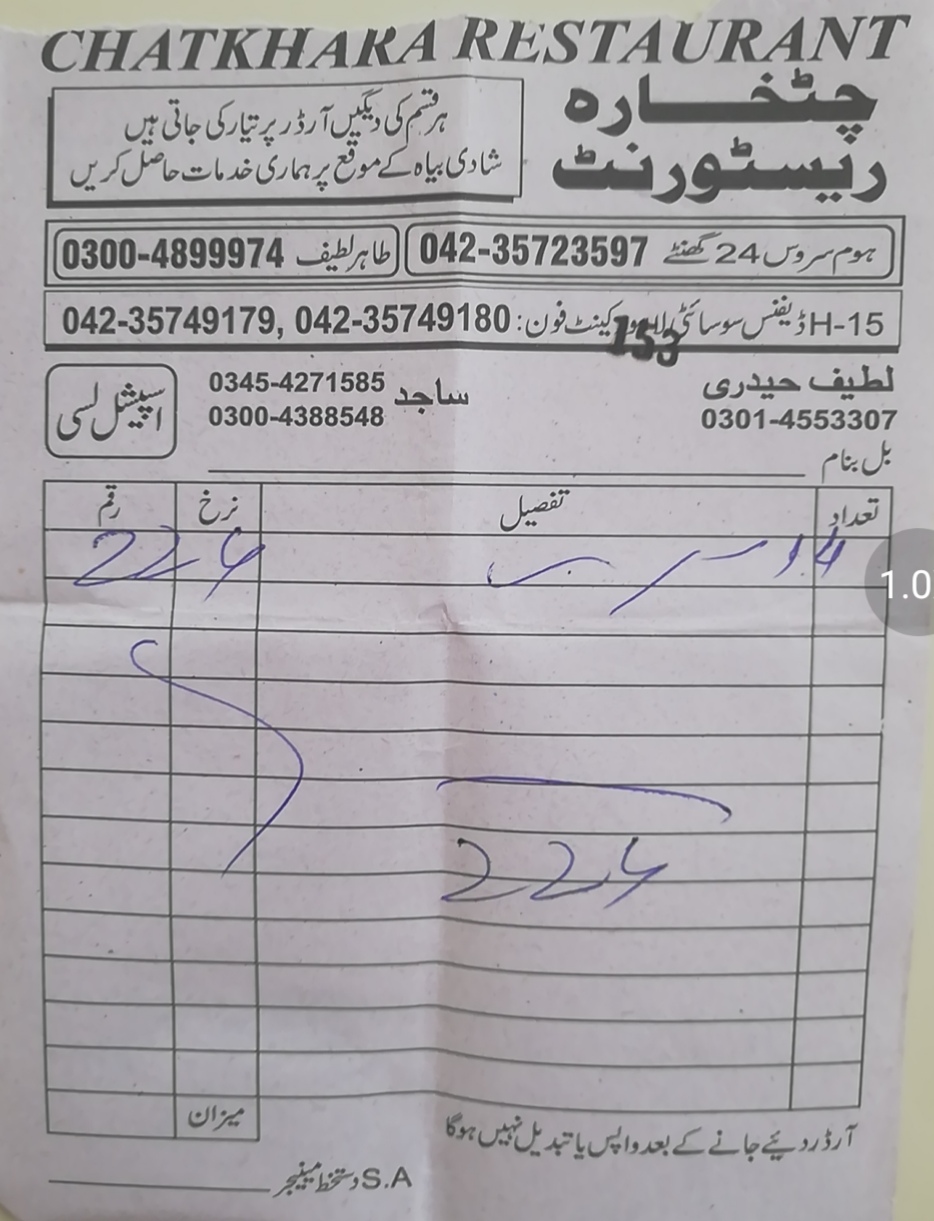 CHATKHARA RESTAURANT
چٹخارہ
ریسٹورنٹ
ہر قسم کی دیگیں آرڈر پر تیار کی جاتی ہیں
شادی بیاہ کے موقع پر ہماری خدمات حاصل کریں
ہوم سروس 24 گھنٹے 042-35723597
طاہر لطیف 0300-4899974
H-15 ڈیفنس سوسائٹی لاہور کینٹ فون: 042-35749179, 042-35749180
153
لطیف حیدری
0301-4553307
ساجد
0345-4271585
0300-4388548
اسپیشل لسی
بل بنام
تعداد تفصیل نرخ رقم
224
224
میزان
آرڈر دیئے جانے کے بعد واپس یا تبدیل نہیں ہوگا
S.A دستخط مینیجر
1.0